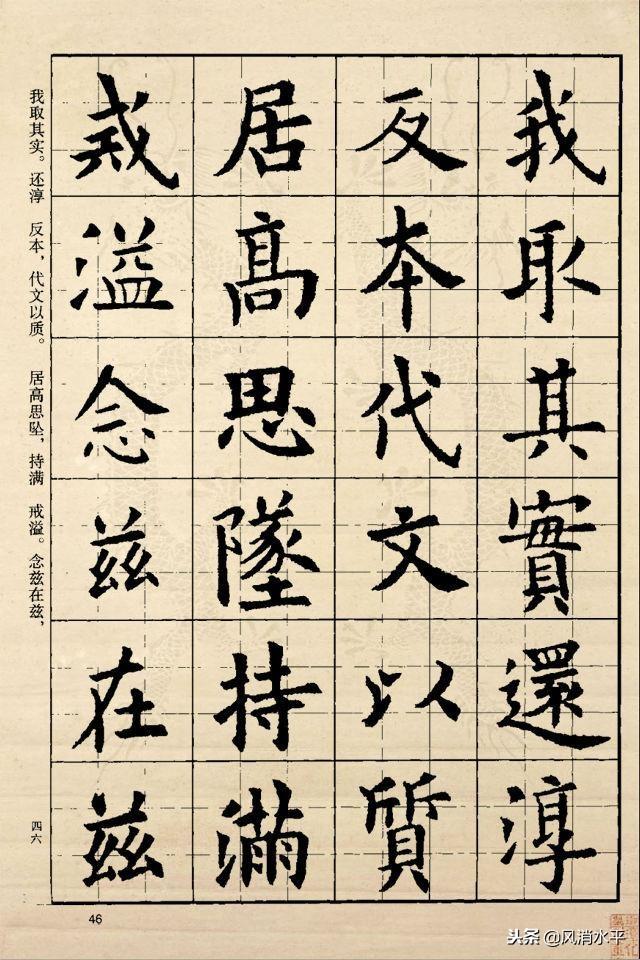 我取其實還淳
反本代文以質
居高思墜持滿
戒溢念兹在兹
我取其实。还淳 反本，代文以质。 居高思坠，持满 戒溢。念兹在兹，
四六
46
头条 @风消水平